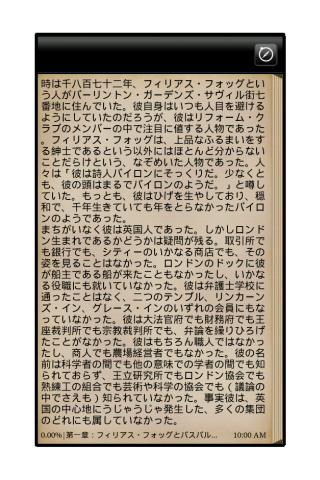 時は千八百七十二年、フィリアス・フォッグとい
う人がバーリントン・ガーデンズ・サヴィル街七
番地に住んでいた。彼自身はいつも人目を避ける
ようにしていたのだろうが、彼はリフォーム・ク
ラブのメンバーの中で注目に値する人物であった
。フィリアス・フォッグは、上品なふるまいをす
る紳士であるという以外にはほとんど分からない
ことだらけという、なぞめいた人物であった。人
々は「彼は詩人バイロンにそっくりだ。少なくと
も、彼の頭はまるでバイロンのようだ。」と噂し
ていた。もっとも、彼はひげを生やしており、穏
和で、千年生きていても年をとらなかったバイロ
ンのようであった。
まちがいなく彼は英国人であった。しかしロンド
ン生まれであるかどうかは疑問が残る。取引所で
も銀行でも、シティーのいかなる商店でも、その
姿を見ることはなかった。ロンドンのドックに彼
が船主である船が来たこともなかったし、いかな
る役職にも就いていなかった。彼は弁護士学校に
通ったことはなく、二つのテンプル、リンカーン
ズ・イン、グレース・インのいずれの会員にもな
っていなかった。彼は大法官府でも財務府でも王
座裁判所でも宗教裁判所でも、弁論を繰りひろげ
たことがなかった。彼はもちろん職人ではなかっ
たし、商人でも農場経営者でもなかった。彼の名
前は科学者の間でも他の意味での学者の間でも知
られておらず、王立研究所でもロンドン協会でも
熟練工の組合でも芸術や科学の協会でも（議論の
中でさえも）知られていなかった。事実彼は、英
国の中心地にうじゃうじゃ発生した、多くの集団
のどれにも属していなかった。
0.00%|第一章：フィリアス・フォッグとパスパル... 10:00 AM